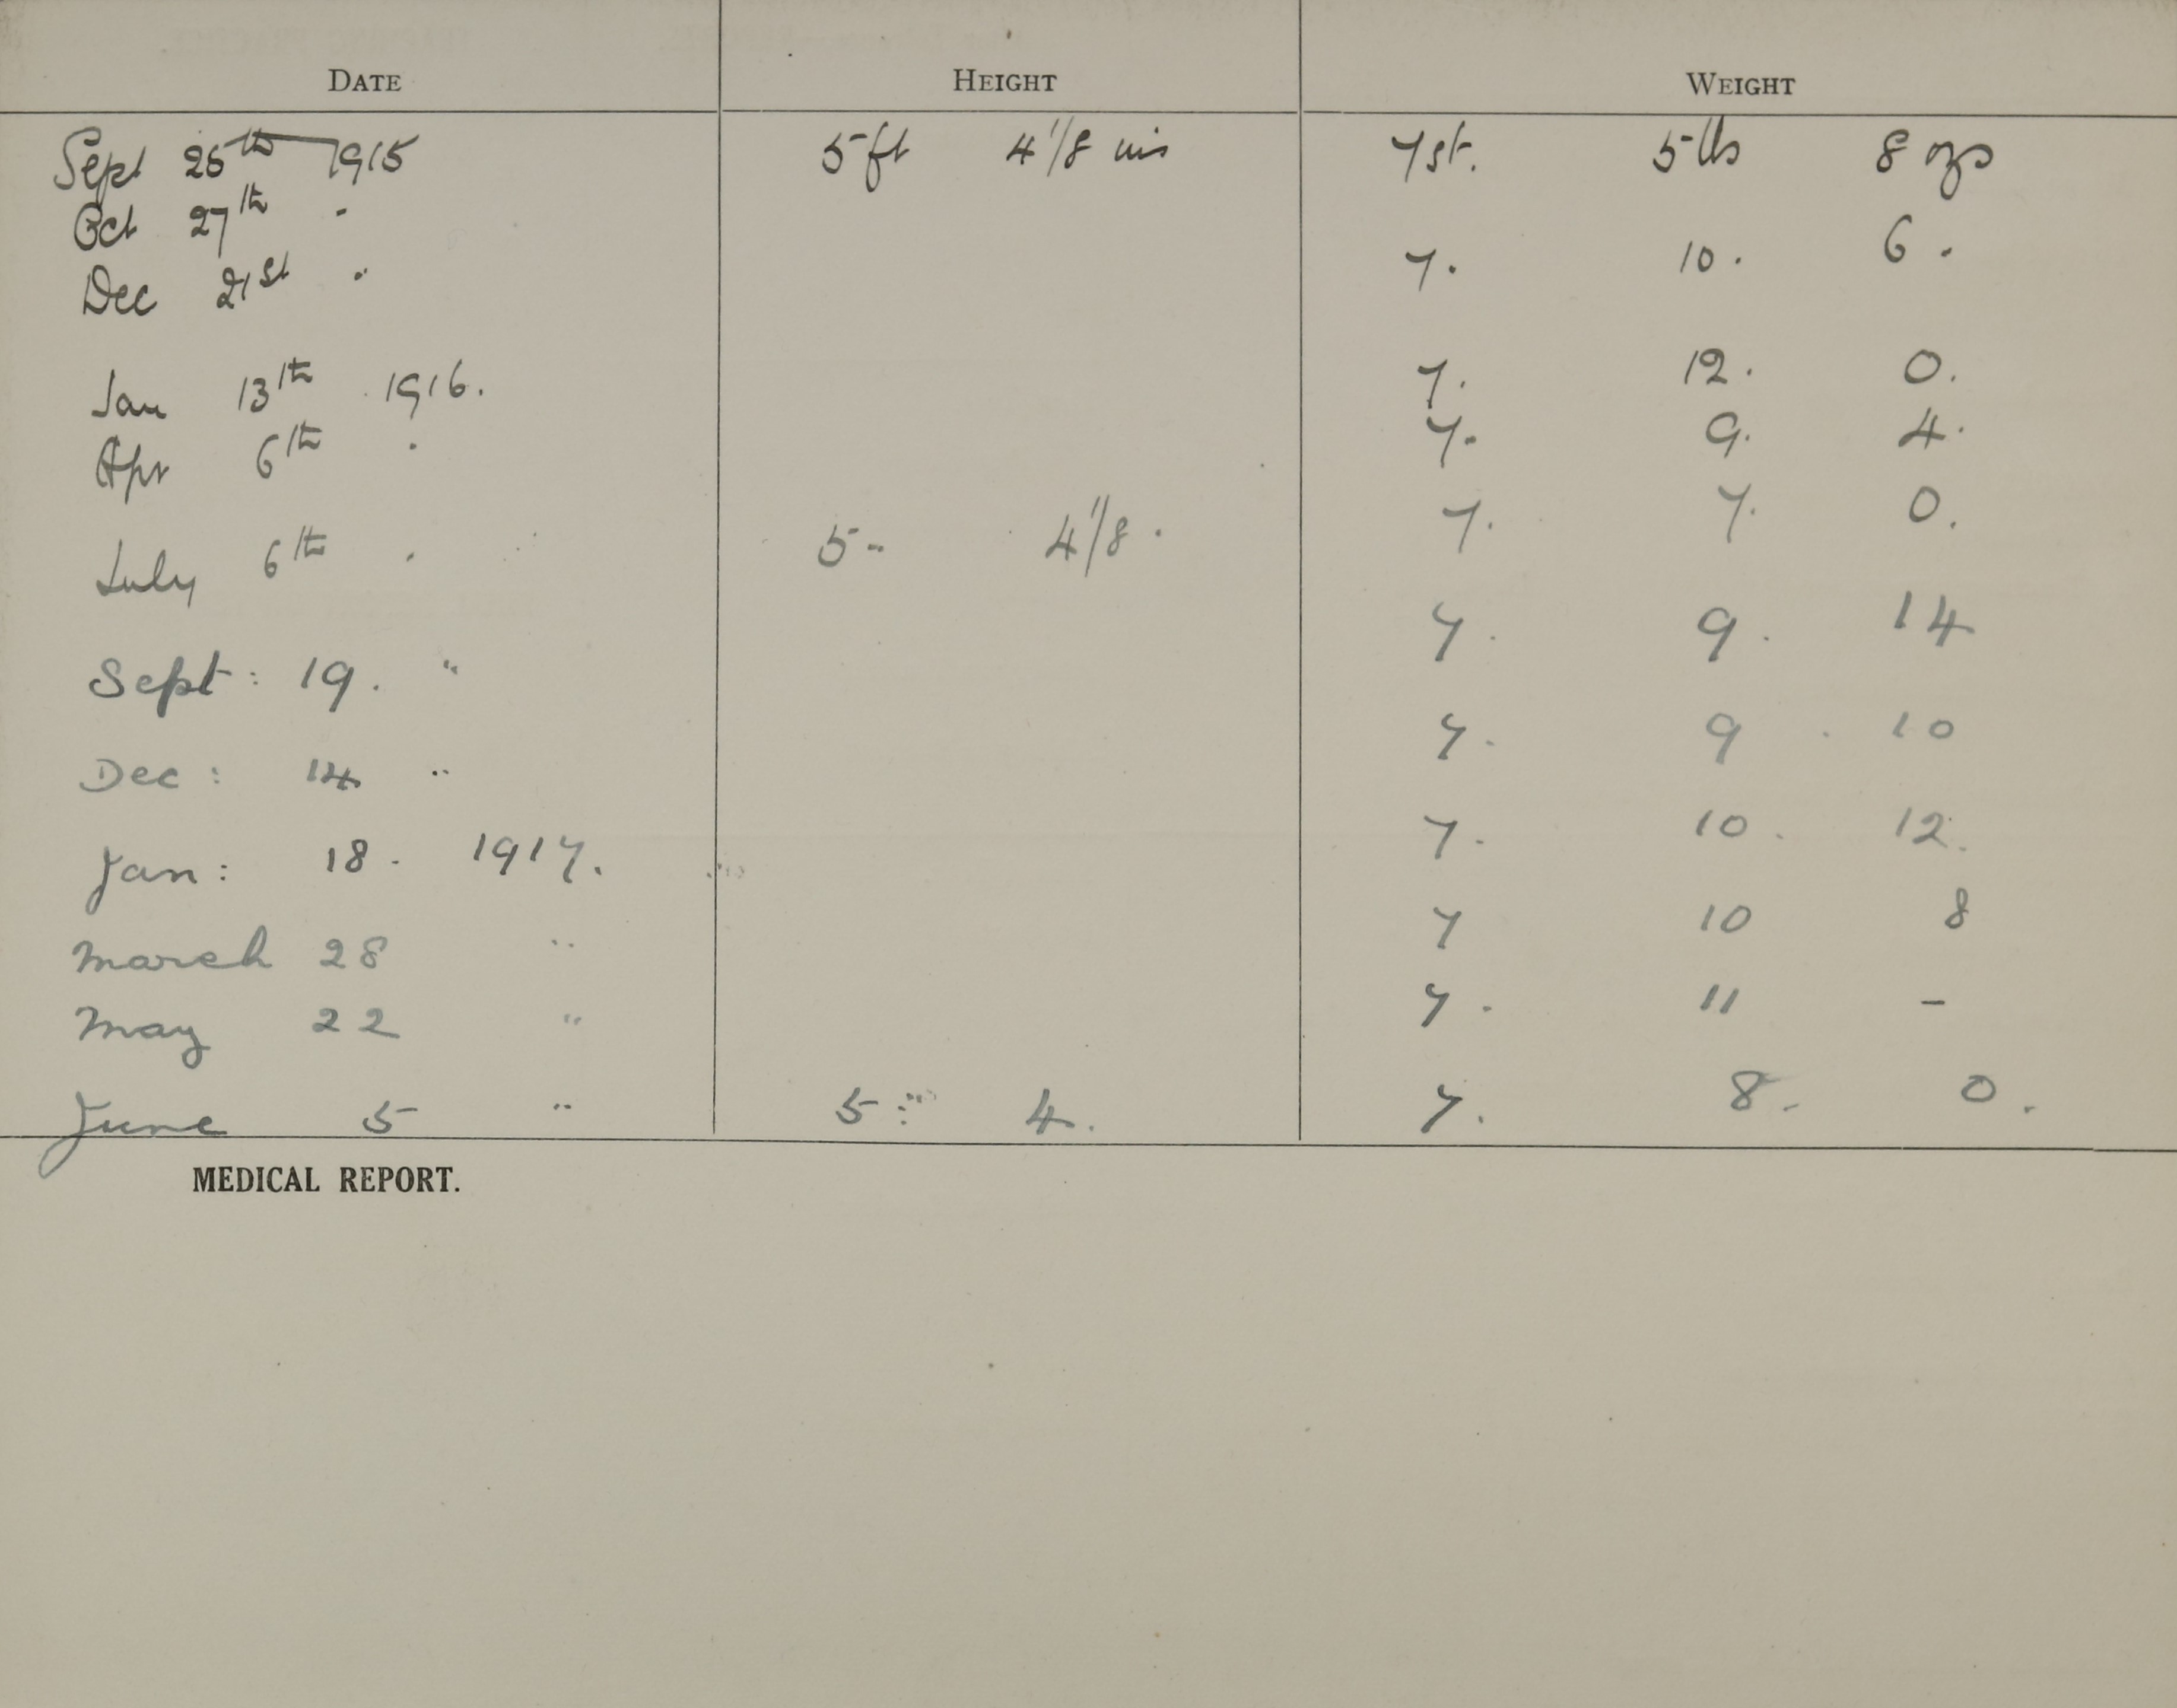 DATE HEIGHT WEIGHT
Sept 25th 1915 5 ft 4 1/8 ins 7 st. 5 lbs 8 ozs
Oct 27th "
Dec 21st " 7. 10. 6.
Jan 13th 1916. 7. 12. 0.
Apr 6th " 7. 9. 4.
July 6th " 5- 4 1/8. 7. 7. 0.
Sept: 19. " 7. 9. 14
Dec: 14 " 7. 9. 10
Jan: 18. 1917. 7. 10. 12.
March 28 " 7 10 8
May 22 " 7. 11 –
June 5 " 5: 4. 7. 8. 0.
MEDICAL REPORT.